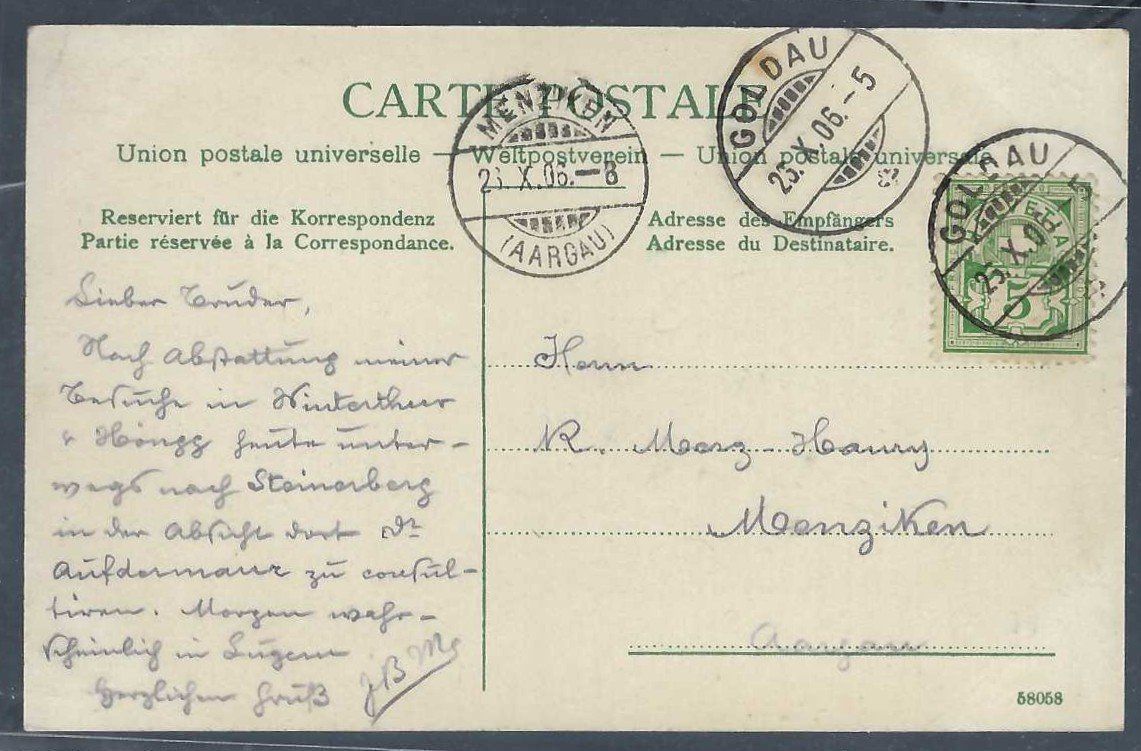 CARTE POSTALE
Union postale universelle — Weltpostverein — Union postale universale
Reserviert für die Korrespondenz
Partie réservée à la Correspondance.
Adresse des Empfängers
Adresse du Destinataire.
MENZIKEN
26.X.06.–8
(AARGAU)
GOLDAU
25.X.06.–5
GOLDAU
25.X.06
5
Lieber Bruder,
Nach Abstattung meiner
Besuche in Winterthur
& Höngg heute unter-
wegs nach Steinerberg
in der Absicht dort Dr
Aufdermaur zu consul-
tiren. Morgen wahr-
scheinlich in Luzern
Herzlichen Gruß
Herrn
R. Merz-Haury
Menziken
Aargau
58058